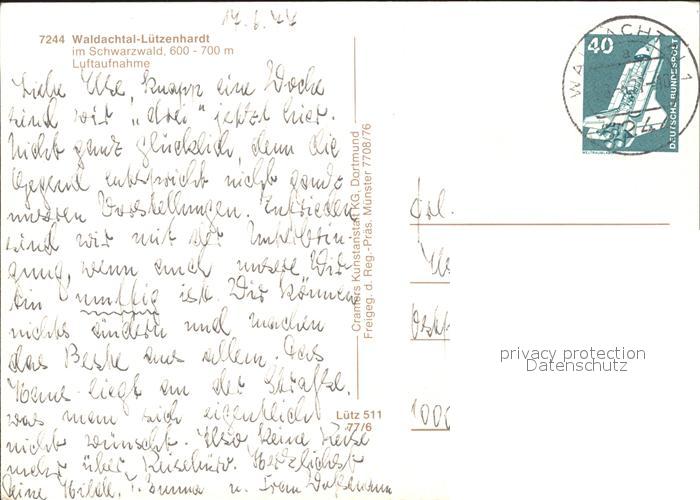 14.6.77
7244 Waldachtal-Lützenhardt
im Schwarzwald, 600 - 700 m
Luftaufnahme
Liebe Ilse, knapp eine Woche
sind wir „drei" jetzt hier.
Nicht ganz glücklich, denn die
Gegend entspricht nicht ganz
unseren Vorstellungen. Zufrieden
sind wir mit der Unterbrin-
gung, wenn auch unsere Wir-
tin muffig ist. Wir können
nichts ändern und machen
das Beste aus allem. Das
Haus liegt an der Straße,
was man sich eigentlich
nicht wünscht. Also keine Reise
mehr über Reisebüro. Herzlichst
Deine Hilde, u. Frau
Cramers Kunstanstalt KG, Dortmund
Freigeg. d. Reg.-Präs. Münster 7708/76
Lütz 511
77/6
40
DEUTSCHE BUNDESPOST
WALDACHTAL 1
Frl.
1000
privacy protection
Datenschutz